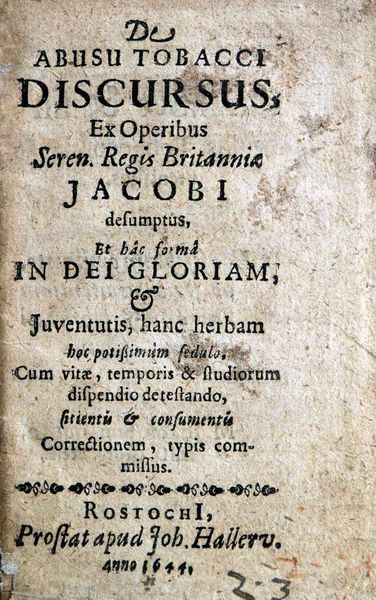 De
ABUSU TOBACCI
DISCURSUS,
Ex Operibus
Seren. Regis Britanniæ
JACOBI
deſumptus,
Et hâc formâ
IN DEI GLORIAM,
&
Juventutis, hanc herbam
hoc potißimùm ſedulo,
Cum vitæ, temporis & ſtudiorum
diſpendio deteſtando,
ſitientũ & conſumentũ
Correctionem, typis com-
miſſus.
ROSTOCHI,
Proſtat apud Joh. Hallerv.
Anno 1644.
2-3